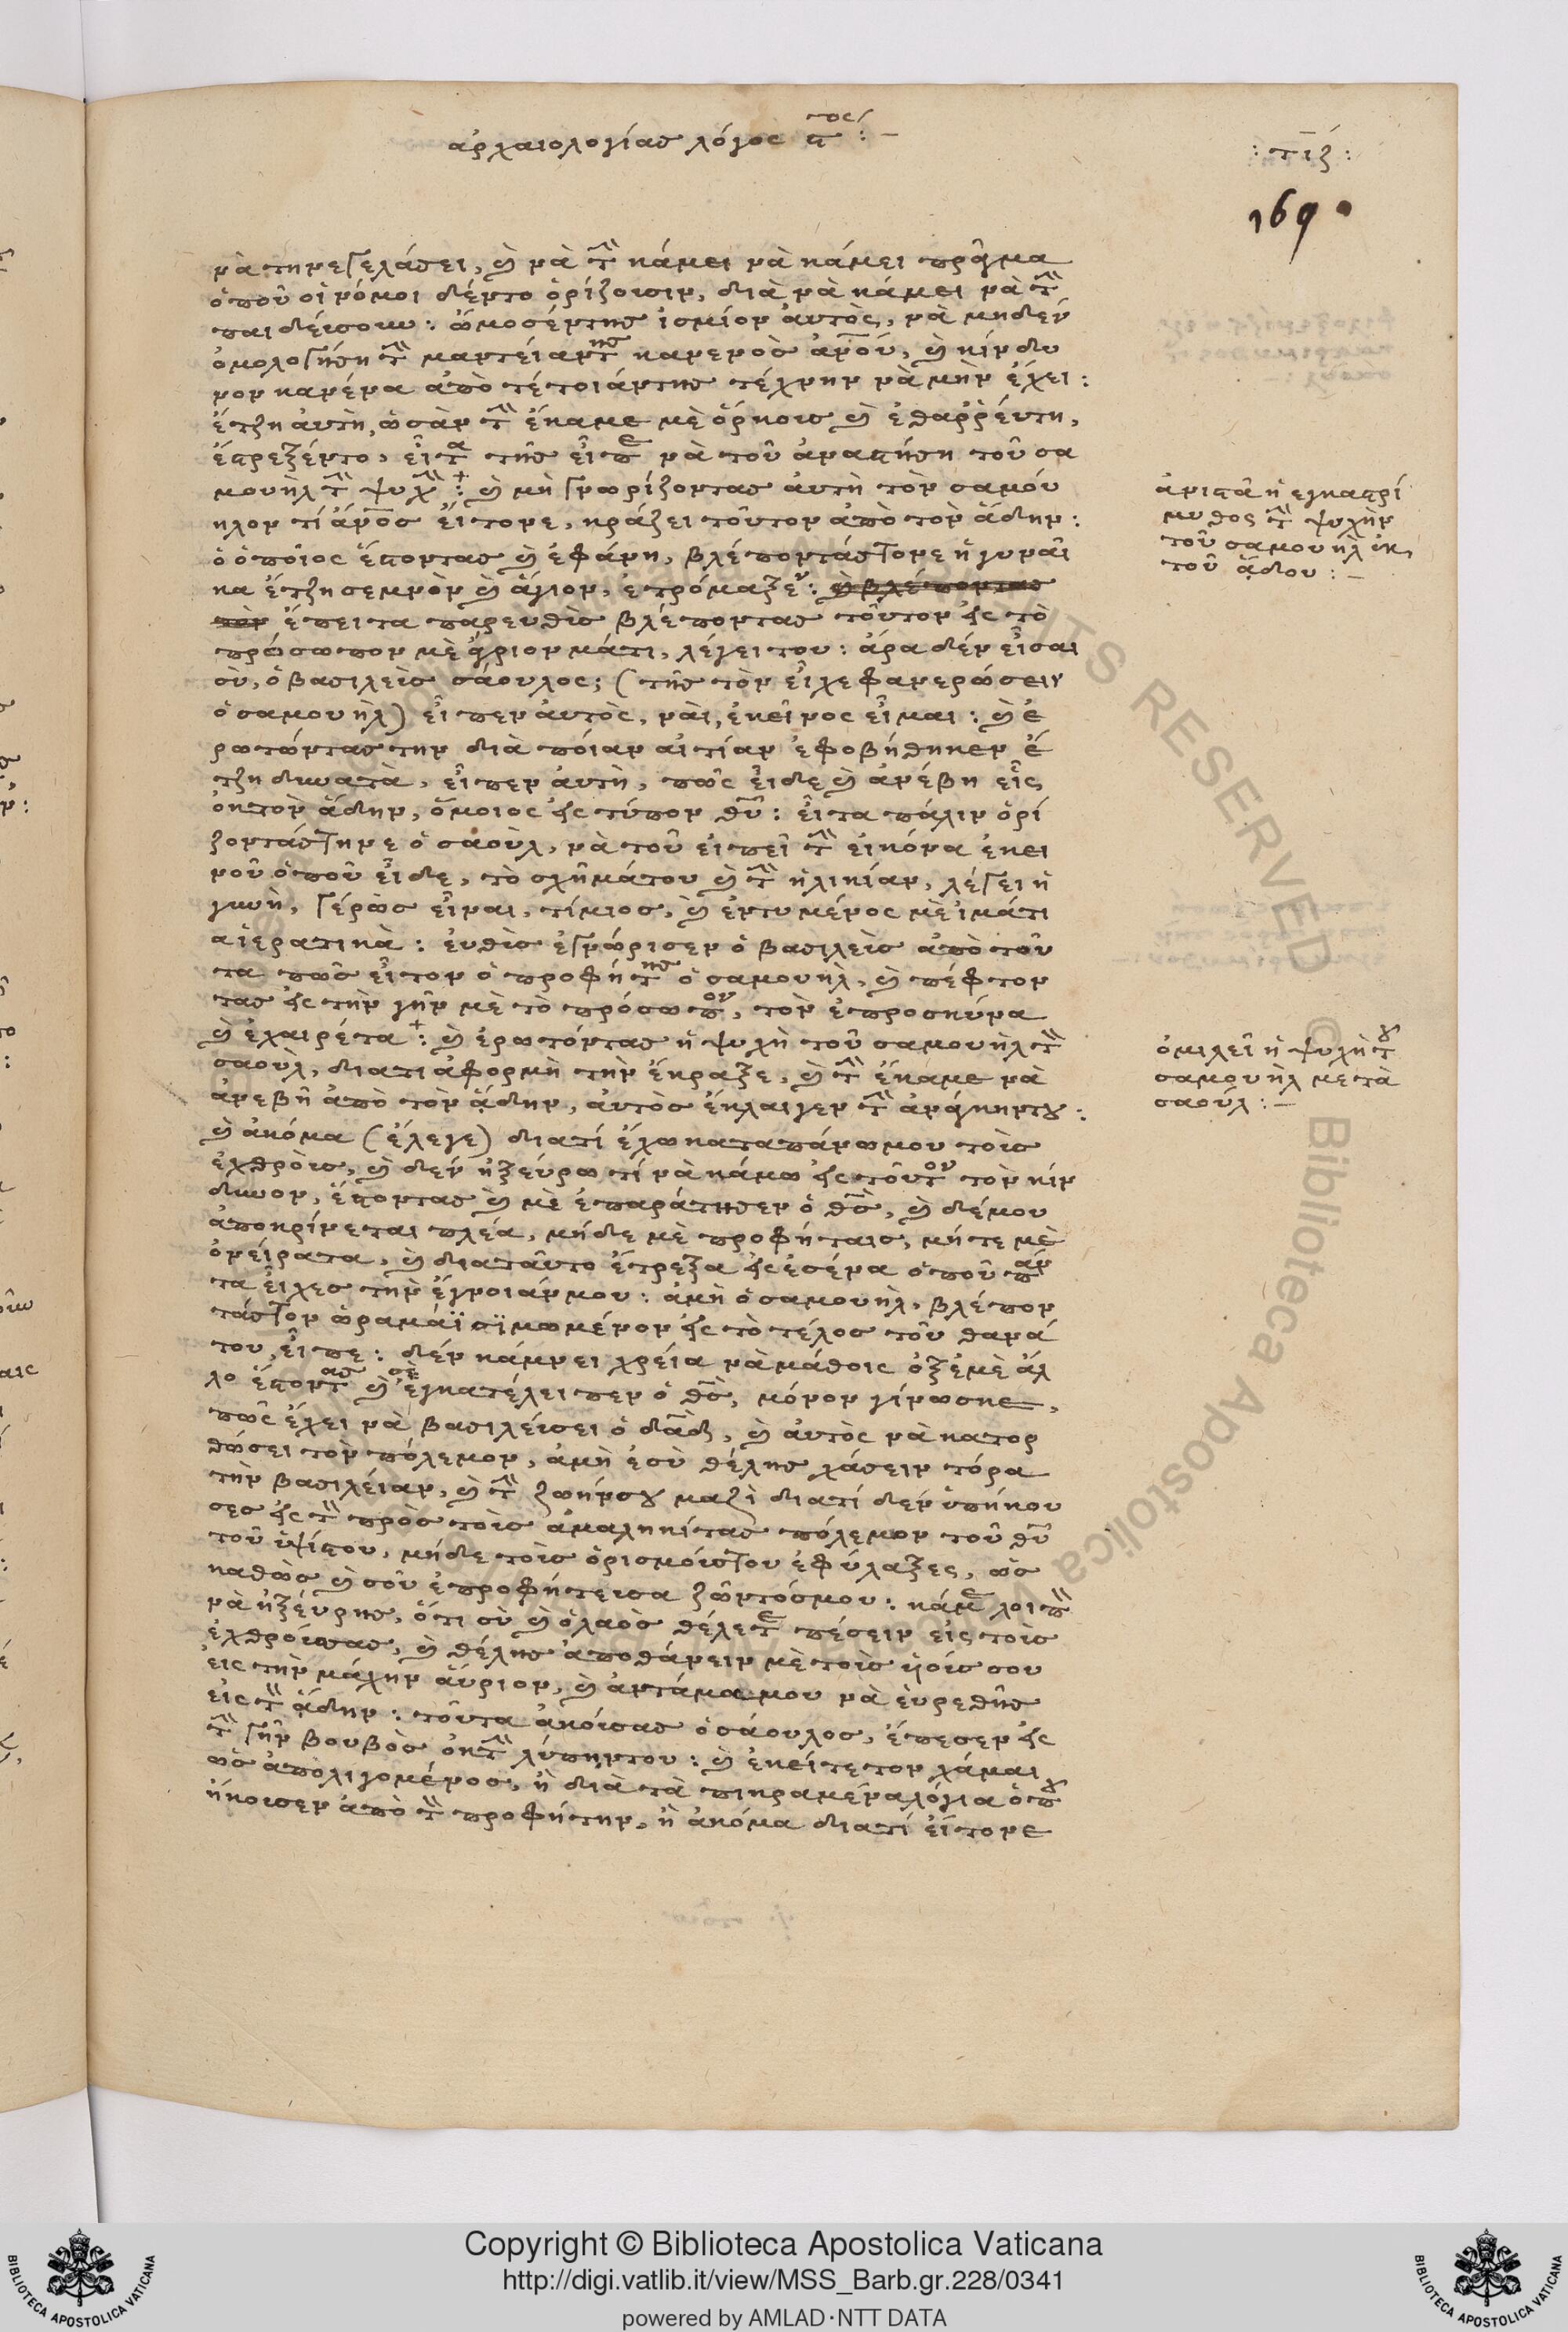 ἀρχαιολογίας λόγος ϛ^τος :–
: τιζ :
169
νὰ τηνεγελάσει, καὶ νὰ τὴν κάμει νὰ κάμει πράγμα
ὁποῦ οἱ νόμοι δέντο ὁρίζουσιν, διὰ νὰ κάμει νὰ τὴν
παιδέυσουν : ὤμοσέντης ἰσμίον ἀυτὸς, νὰ μηδὲν
ὁμολογήση τὴν μαντείαντης κανενὸς ἀνοῦ, καὶ κίνδυ
νον κανένα ἀπὸ τέτοιάντης τέχνην νὰ μὴν ἔχει :
ἔτζη ἀυτὴ, ὡσὰν τὴν ἔκαμε μὲ ὅρκους καὶ ἐθαῤῥέυτη,
ἔστρεξέντο, εἶτα τῆς εἶπε νὰ τοῦ ἀναστήση τοῦ σα
μουὴλ τὴν ψυχὴν : καὶ μὴ γνωρίζοντας ἀυτὴ τὸν σαμού
ηλον τί ἄνος εἴτονε, κράζει τοῦτον ἀπὸ τὸν ἅδην :
ὁ ὁποῖος ἔστοντας καὶ ἐφάνη, βλέποντάςτονε ἡ γυναῖ
κα ἔτζη σεμνὸν καὶ ἅγιον, ἐτρόμαξεν : καὶ βλέποντας
τὸν ἔπειτα παρευθὺς βλέποντας τοῦτον εἰς τὸ
πρόσωπον μὲ ἄγριον μάτι, λέγει του : ἄρα δὲν εἶσαι
σὺ, ὁ βασιλεὺς σάουλος; (τῆς τὸν εἶχε φανερώσειν
ὁ σαμουὴλ) εἶπεν ἀυτὸς, νὰι, ἐκεῖνος εἶμαι : καὶ ἐ
ρωτῶντας την διὰ ποίαν αἰτίαν ἐφοβήθηκεν ἔ
τζη δυνατὰ, εἶπεν ἀυτὴ, πῶς εἶδε καὶ ἀνέβη εἷς
ἐκτὸν ἅδην, ὅμοιος εἰς τύπον θυ : εἶτα πάλιν ὁρί
ζοντάςτηνε ὁ σαοὺλ, νὰ τοῦ εἰπεῖ τὴν εἰκόνα ἐκει
νοῦ ὁποῦ εἶδε, τὸ σχῆμάτου καὶ τὴν ἡλικίαν, λέγει ἡ
γυνὴ, γέρὼς εἶναι, τίμιος, καὶ ἐντυμένος μὲ ἱμάτι
α ἱερατικὰ : ἐυθὺς ἐγνώρισεν ὁ βασιλεὺς ἀπὸ τοῦ
τα πῶς εἶτον ὁ προφήτης ὁ σαμουὴλ, καὶ πέφτον
τας εἰς τὴν γῆν μὲ τὸ πρόσωπον, τὸν ἐπροσκύνα
καὶ ἐχαιρέτα : καὶ ἐρωτόντας ἡ ψυχὴ τοῦ σαμουὴλ τὸν
σαοὺλ, διατι ἀφορμὴ τὴν ἔκραξε, καὶ τὴν ἔκαμε νὰ
ἀνεβῆ ἀπὸ τὸν ἅδην, ἀυτὸς ἔκλαιγεν τὴν ἀνάγκηντου :
καὶ ἀκόμα (ἔλεγε) διατί ἔχω καταπάνωμου τοὺς
ἐχθροὺς, καὶ δὲν ἠξεύρω τί νὰ κάμω εἰς τοῦτον τὸν κίν
δυνον, ἔστοντας καὶ μὲ ἐπαράτησεν ὁ θς, καὶ δέμου
ἀποκρίνεται πλέα, μήδε μὲ προφήταις, μήτε μὲ
ὀνείρατα, καὶ διαταῦτο ἔτρεξα εἰς ἐσένα ὁποῦ πάν
τα εἶχες τὴν ἔγνοιάνμου : ἀμὴ ὁ σαμουὴλ, βλέπον
τάςτον εἰς τὸ τέλος τοῦ θανά
του, εἶπε : δὲν κάμνει χρεία νὰ μάθοις ὀξέμὲ ἄλ
λο ἔστοντας καὶ σὲ ἐγκατέλειπεν ὁ θς, μόνον γίνωσκε,
πῶς ἔχει νὰ βασιλεύσει ὁ δαδ, καὶ ἀυτὸς νὰ κατορ
θώσει τὸν πόλεμον, ἀμὴ ἐσὺ θέλης χάσειν τόρα
τὴν βασιλείαν, καὶ τὴν ζωήνσου μαζὶ διατί δὲν ὑπήκου
σες εἰς τὸν πρὸς τοὺς ἀμαληκίτας πόλεμον τοῦ θυ
τοῦ ὑψίστου, μήδε τοὺς ὁρισμούςτου ἐφύλαξες, ὡς
καθὼς καὶ σοῦ ἐπροφήτευσα ζῶντόσμου : κάμε λοιπὸν
νὰ ἠξεύρης, ὅτι σὺ καὶ ὁ λαὸς θέλετε πέσειν εἰς τοὺς
ἐχθρούςσας, καὶ θέλης ἀποθάνειν μὲ τοὺς ὑούς σου
εἰς τὴν μάχην ἄυριον, καὶ ἀντάμαμου νὰ ἑυρεθῆς
εἰς τὸν ἅδην : τοῦτα ἀκούσας ὁ σάουλος, ἔπεσεν εἰς
τὴν γῆν βουβὸς ἐκ τὴν λύπηντου : καὶ ἐκείτετον χάμαι
ὡς ἀπολιγομένος, ἢ διὰ τὰ πικραμέναλόγια ὁποῦ
ἤκουσεν ἀπὸ τὸν προφήτην, ἢ ἀκόμα διατί εἴτονε
ἀνιστᾶ ἡ εγκαστρί
μυθος τὴν ψυχὴν
τοῦ σαμουὴλ ἐκ
τοῦ ἅδου :–
ὁμιλεῖ ἡ ψυχὴ τοῦ
σαμουὴλ μετὰ
σαούλ :–
Copyright © Biblioteca Apostolica Vaticana
http://digi.vatlib.it/view/MSS_Barb.gr.228/0341
powered by AMLAD·NTT DATA